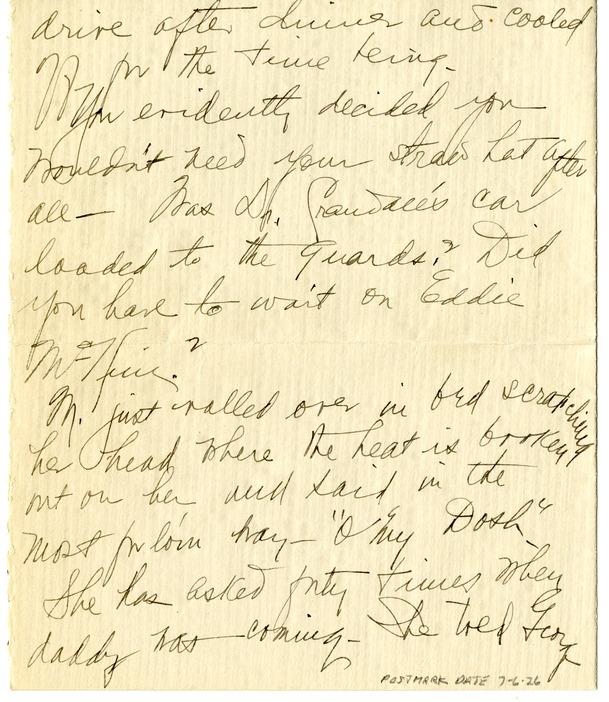 drive after dinner and cooled
off for the time being.
You evidently decided you
wouldn't need your straw hat after
all— Was Dr. Crandall's car
loaded to the guards? Did
you have to wait on Eddie
M. just rolled over in bed scratching
her head where the heat is broken
out on her and said in the
most forlorn way— "O my Dosh"
She has asked forty times when
daddy was coming— She told Georg
POSTMARK DATE 7-6-26